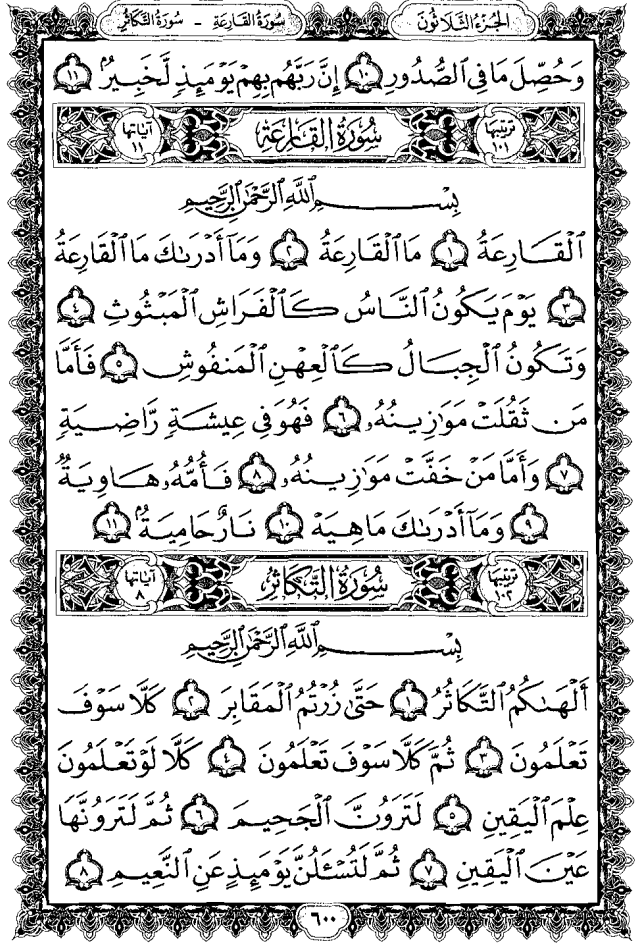 الجزء الثلاثون
سورة القارعة - سورة التكاثر
وَحُصِّلَ مَا فِي ٱلصُّدُورِ ١٠ إِنَّ رَبَّهُم بِهِمْ يَوْمَئِذٍ لَّخَبِيرٌۢ ١١
ترتيبها ١٠١ سُورَةُ القَارِعَةِ آياتها ١١
بِسْمِ اللَّهِ الرَّحْمَٰنِ الرَّحِيمِ
ٱلْقَارِعَةُ ١ مَا ٱلْقَارِعَةُ ٢ وَمَآ أَدْرَىٰكَ مَا ٱلْقَارِعَةُ
٣ يَوْمَ يَكُونُ ٱلنَّاسُ كَٱلْفَرَاشِ ٱلْمَبْثُوثِ ٤
وَتَكُونُ ٱلْجِبَالُ كَٱلْعِهْنِ ٱلْمَنفُوشِ ٥ فَأَمَّا
مَن ثَقُلَتْ مَوَٰزِينُهُۥ ٦ فَهُوَ فِي عِيشَةٍ رَّاضِيَةٍ
٧ وَأَمَّا مَنْ خَفَّتْ مَوَٰزِينُهُۥ ٨ فَأُمُّهُۥ هَاوِيَةٌ
٩ وَمَآ أَدْرَىٰكَ مَا هِيَهْ ١٠ نَارٌ حَامِيَةٌۢ ١١
ترتيبها ١٠٢ سُورَةُ التَّكَاثُرِ آياتها ٨
بِسْمِ اللَّهِ الرَّحْمَٰنِ الرَّحِيمِ
أَلْهَىٰكُمُ ٱلتَّكَاثُرُ ١ حَتَّىٰ زُرْتُمُ ٱلْمَقَابِرَ ٢ كَلَّا سَوْفَ
تَعْلَمُونَ ٣ ثُمَّ كَلَّا سَوْفَ تَعْلَمُونَ ٤ كَلَّا لَوْ تَعْلَمُونَ
عِلْمَ ٱلْيَقِينِ ٥ لَتَرَوُنَّ ٱلْجَحِيمَ ٦ ثُمَّ لَتَرَوُنَّهَا
عَيْنَ ٱلْيَقِينِ ٧ ثُمَّ لَتُسْـَٔلُنَّ يَوْمَئِذٍ عَنِ ٱلنَّعِيمِ ٨
٦٠٠